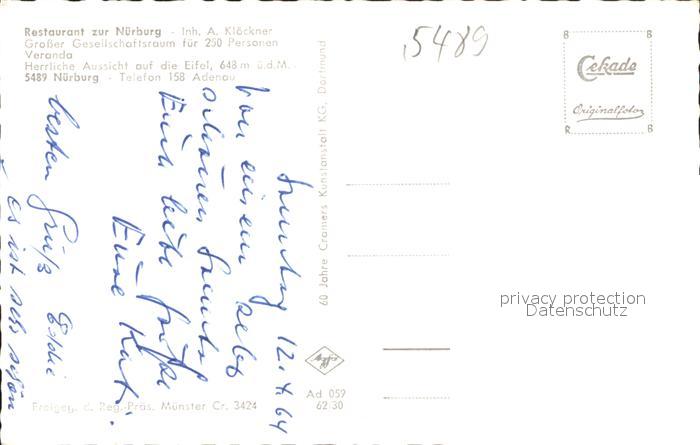 Restaurant zur Nürburg - Inh. A. Klöckner
Großer Gesellschaftsraum für 250 Personen
Veranda
Herrliche Aussicht auf die Eifel, 648 m ü.d.M.
5489 Nürburg - Telefon 158 Adenau
5489
Cekade
Originalfoto
R B
60 Jahre Cramers Kunstanstalt KG, Dortmund
Sonntag 12.4.64
Von einem
schönen
Euch liebe Grüße
Eure Kati.
besten Gruß
es ist sehr schön
privacy protection
Datenschutz
Agfa
Ad 059
62/30
Freigeg. d. Reg.-Präs. Münster Cr. 3424